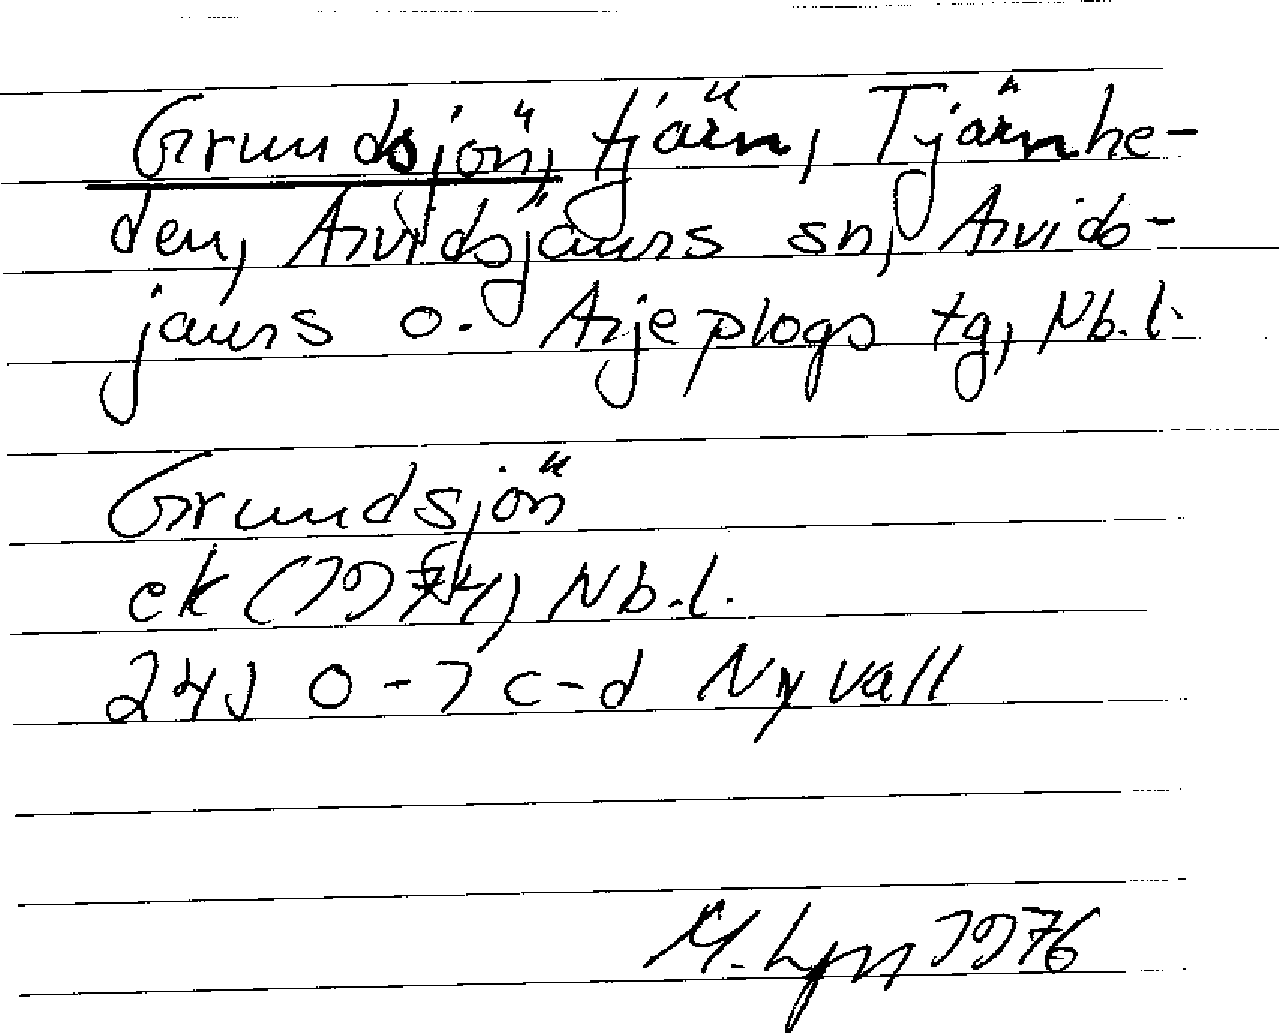 Grundsjön, tjärn, Tjärnhe-
den, Arvidsjaurs sn, Arvids-
jaurs o. Arjeplogs tg, Nb.l.
Grundsjön
ek (1974) Nb.l.
24J 0-1 c-d Nyvall
M. 1976